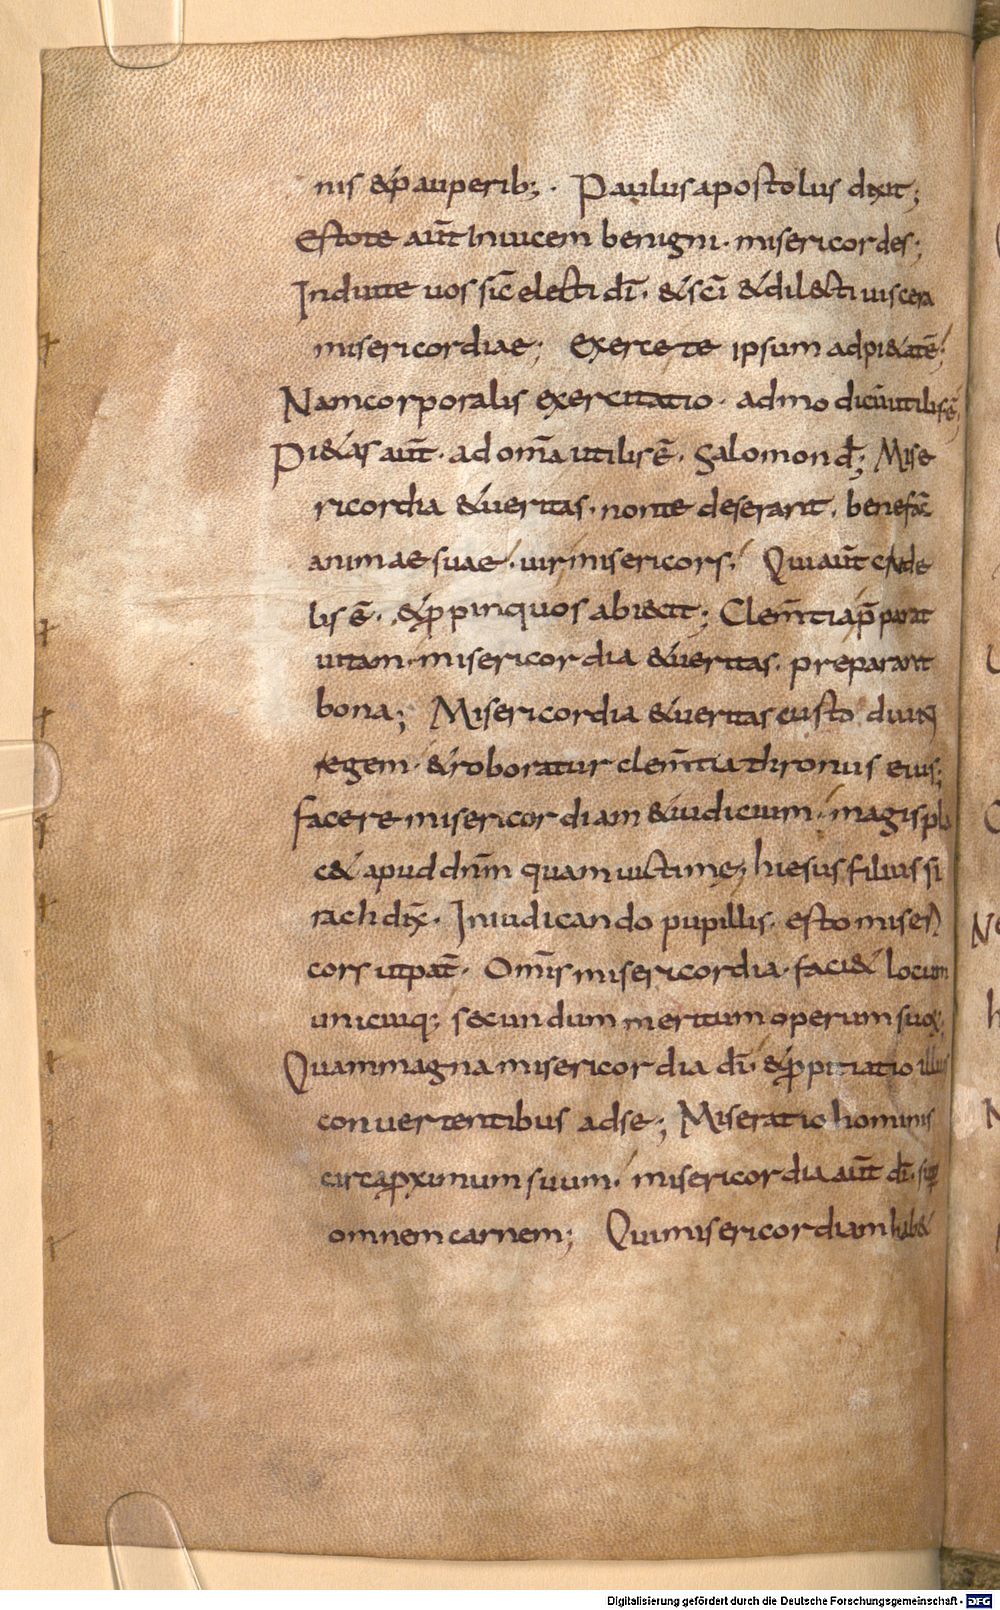 nis &pauperib; · Paulus apostolus dixit;
Estote aut̄ Inuicem benigni · misericordes;
Induite uos sic̄ electi dī · & sc̄i & dilecti uiscera
misericordiae; Exerce te ipsum ad pi&atē;
Nam corporalis exercitatio · ad modicū utilis ē;
Pi&as aut̄ · ad om̄a utilis ē · Salomon d̄; Mise
ricordia & ueritas · non te deserant · benefac̄
animae suae · uir misericors · Qui aut̄ crude
lis ē · & ꝓpinquos abiecit; Clem̄tia p̄parat
uitam · misericordia & ueritas · preparant
bona; Misericordia & ueritas custodiunt
regem · & roboratur clem̄tia thronus eius;
facere misericordiam & iudicium · magis pla
c& apud dn̄m quam uictimę; hiesus filius si
rach dix̄ · In iudicando pupillis · esto miseri
cors ut pat̄ · Om̄is misericordia · faci& locum
unicuiq; secundum meritum operum suoꝝ;
Quam magna misericordia dī · & ꝓpitiatio illius
conuertentibus ad se; Miseratio hominis
circa ꝓximum suum · misericordia aut̄ dī · sup̄
omnem carnem; Qui misericordiam hab&
Digitalisierung gefördert durch die Deutsche Forschungsgemeinschaft - DFG